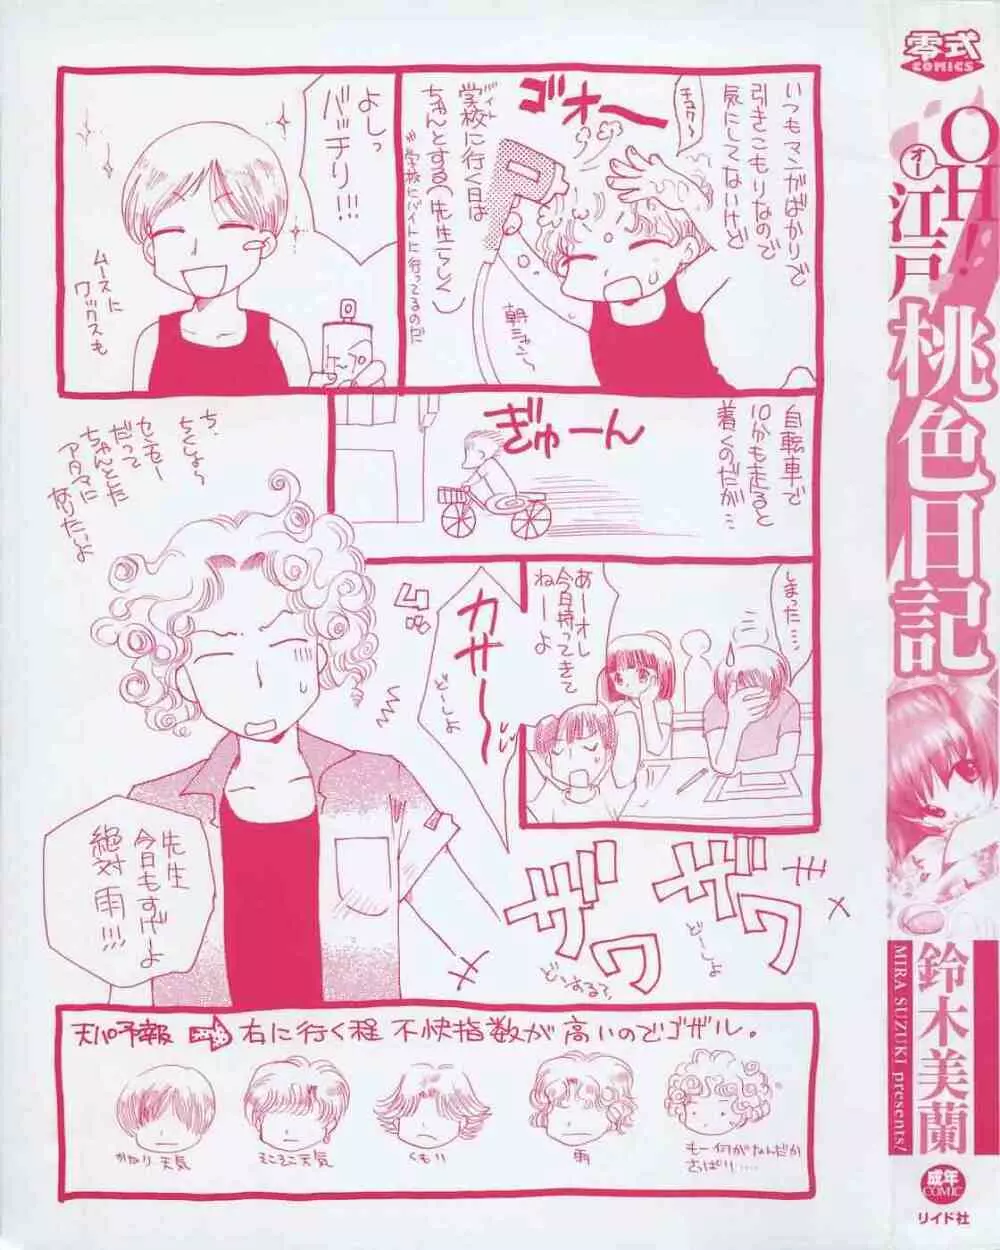 いつもマンガばかりで
引きこもりなので
気にしてないけど
ゴオー
学校に行く日は
バイト
ちゃんとする(先生らしく)
※学校にバイトに行ってるのだ
朝シャン〜
よしっ
バッチリ!!!
ムースに
ワックスも
自転車で
10分も走ると
着くのだが…
ぎゅーん
ち、
ちくしょ〜
センセー
だって
ちゃんとした
アタマに
なりたいよ
しまった…
あーオレ
今日持ってきて
ねーよ
カサ〜〜
どーしよ
先生
今日もすげーよ
絶対雨!!!
ザワ
ザワ
どーしよ
天パ予報
右に行く程 不快指数が 高いのでゴザル。
かなり天気
そこそこ天気
くもり
雨
もー何がなんだか
さっぱり……
零式
COMICS
OH!
オー
江戸
桃色日記
鈴木美蘭
MIRA SUZUKI presents!
成年
COMIC
リイド社